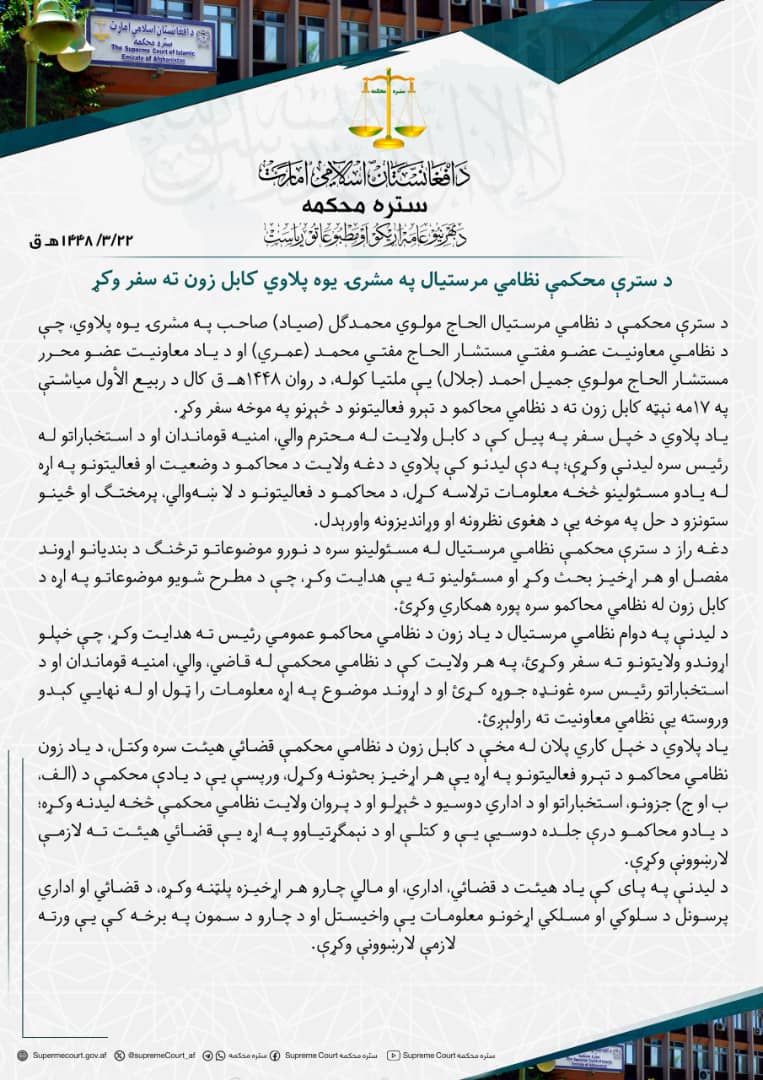 د افغانستان اسلامي امارت
ستره محکمه
The Supreme Court of Islamic
Emirate of Afghanistan
ستره محکمه
د افغانستان اسلامي امارت
ستره محکمه
د بهرنیو عامه اړیکو او مطبوعاتو ریاست
۱۴۴۸/۳/۲۲هـ ق
د سترې محکمې نظامي مرستیال په مشرۍ یوه پلاوي کابل زون ته سفر وکړ
د سترې محکمې د نظامي مرستیال الحاج مولوي محمدګل (صیاد) صاحب په مشرۍ یوه پلاوي، چې
د نظامي معاونیت عضو مفتي مستشار الحاج مفتي محمد (عمري) او د یاد معاونیت عضو محرر
مستشار الحاج مولوي جمیل احمد (جلال) یې ملتیا کوله، د روان ۱۴۴۸هـ ق کال د ربیع الأول میاشتې
په ۱۷مه نېټه کابل زون ته د نظامي محاکمو د تېرو فعالیتونو د څېړنو په موخه سفر وکړ.
یاد پلاوي د خپل سفر په پیل کې د کابل ولایت له محترم والي، امنیه قوماندان او د استخباراتو له
رئیس سره لیدنې وکړې؛ په دې لیدنو کې پلاوي د دغه ولایت د محاکمو د وضعیت او فعالیتونو په اړه
له یادو مسئولینو څخه معلومات ترلاسه کړل، د محاکمو د فعالیتونو د لا ښه‌والي، پرمختګ او ځینو
ستونزو د حل په موخه یې د هغوی نظرونه او وړاندیزونه واورېدل.
دغه راز د سترې محکمې نظامي مرستیال له مسئولینو سره د نورو موضوعاتو ترڅنګ د بندیانو اړوند
مفصل او هر اړخیز بحث وکړ او مسئولینو ته یې هدایت وکړ، چې د مطرح شویو موضوعاتو په اړه د
کابل زون له نظامي محاکمو سره پوره همکاري وکړئ.
د لیدنې په دوام نظامي مرستیال د یاد زون د نظامي محاکمو عمومي رئیس ته هدایت وکړ، چې خپلو
اړوندو ولایتونو ته سفر وکړئ، په هر ولایت کې د نظامي محکمې له قاضي، والي، امنیه قوماندان او د
استخباراتو رئیس سره غونډه جوړه کړئ او د اړوند موضوع په اړه معلومات را ټول او له نهایي کېدو
وروسته یې نظامي معاونیت ته راولېږئ.
یاد پلاوي د خپل کاري پلان له مخې د کابل زون د نظامي محکمې قضائي هیئت سره وکتل، د یاد زون
نظامي محاکمو د تېرو فعالیتونو په اړه یې هر اړخیز بحثونه وکړل، ورپسې یې د یادې محکمې د (الف،
ب او ج) جزونو، استخباراتو او د اداري دوسیو د څېړلو او د پروان ولایت نظامي محکمې څخه لیدنه وکړه؛
د یادو محاکمو درې جلده دوسیې یې و کتلې او د نېمګړتیاوو په اړه یې قضائي هیئت ته لازمې
لارښوونې وکړې.
د لیدنې په پای کې یاد هیئت د قضائي، اداري، او مالي چارو هر اړخیزه پلټنه وکړه، د قضائي او اداري
پرسونل د سلوکي او مسلکي اړخونو معلومات یې واخیستل او د چارو د سمون په برخه کې یې ورته
لازمې لارښوونې وکړې.
Supermecourt.gov.af @supremeCourt_af ستره محکمه Supreme Court ستره محکمه Supreme Court ستره محکمه